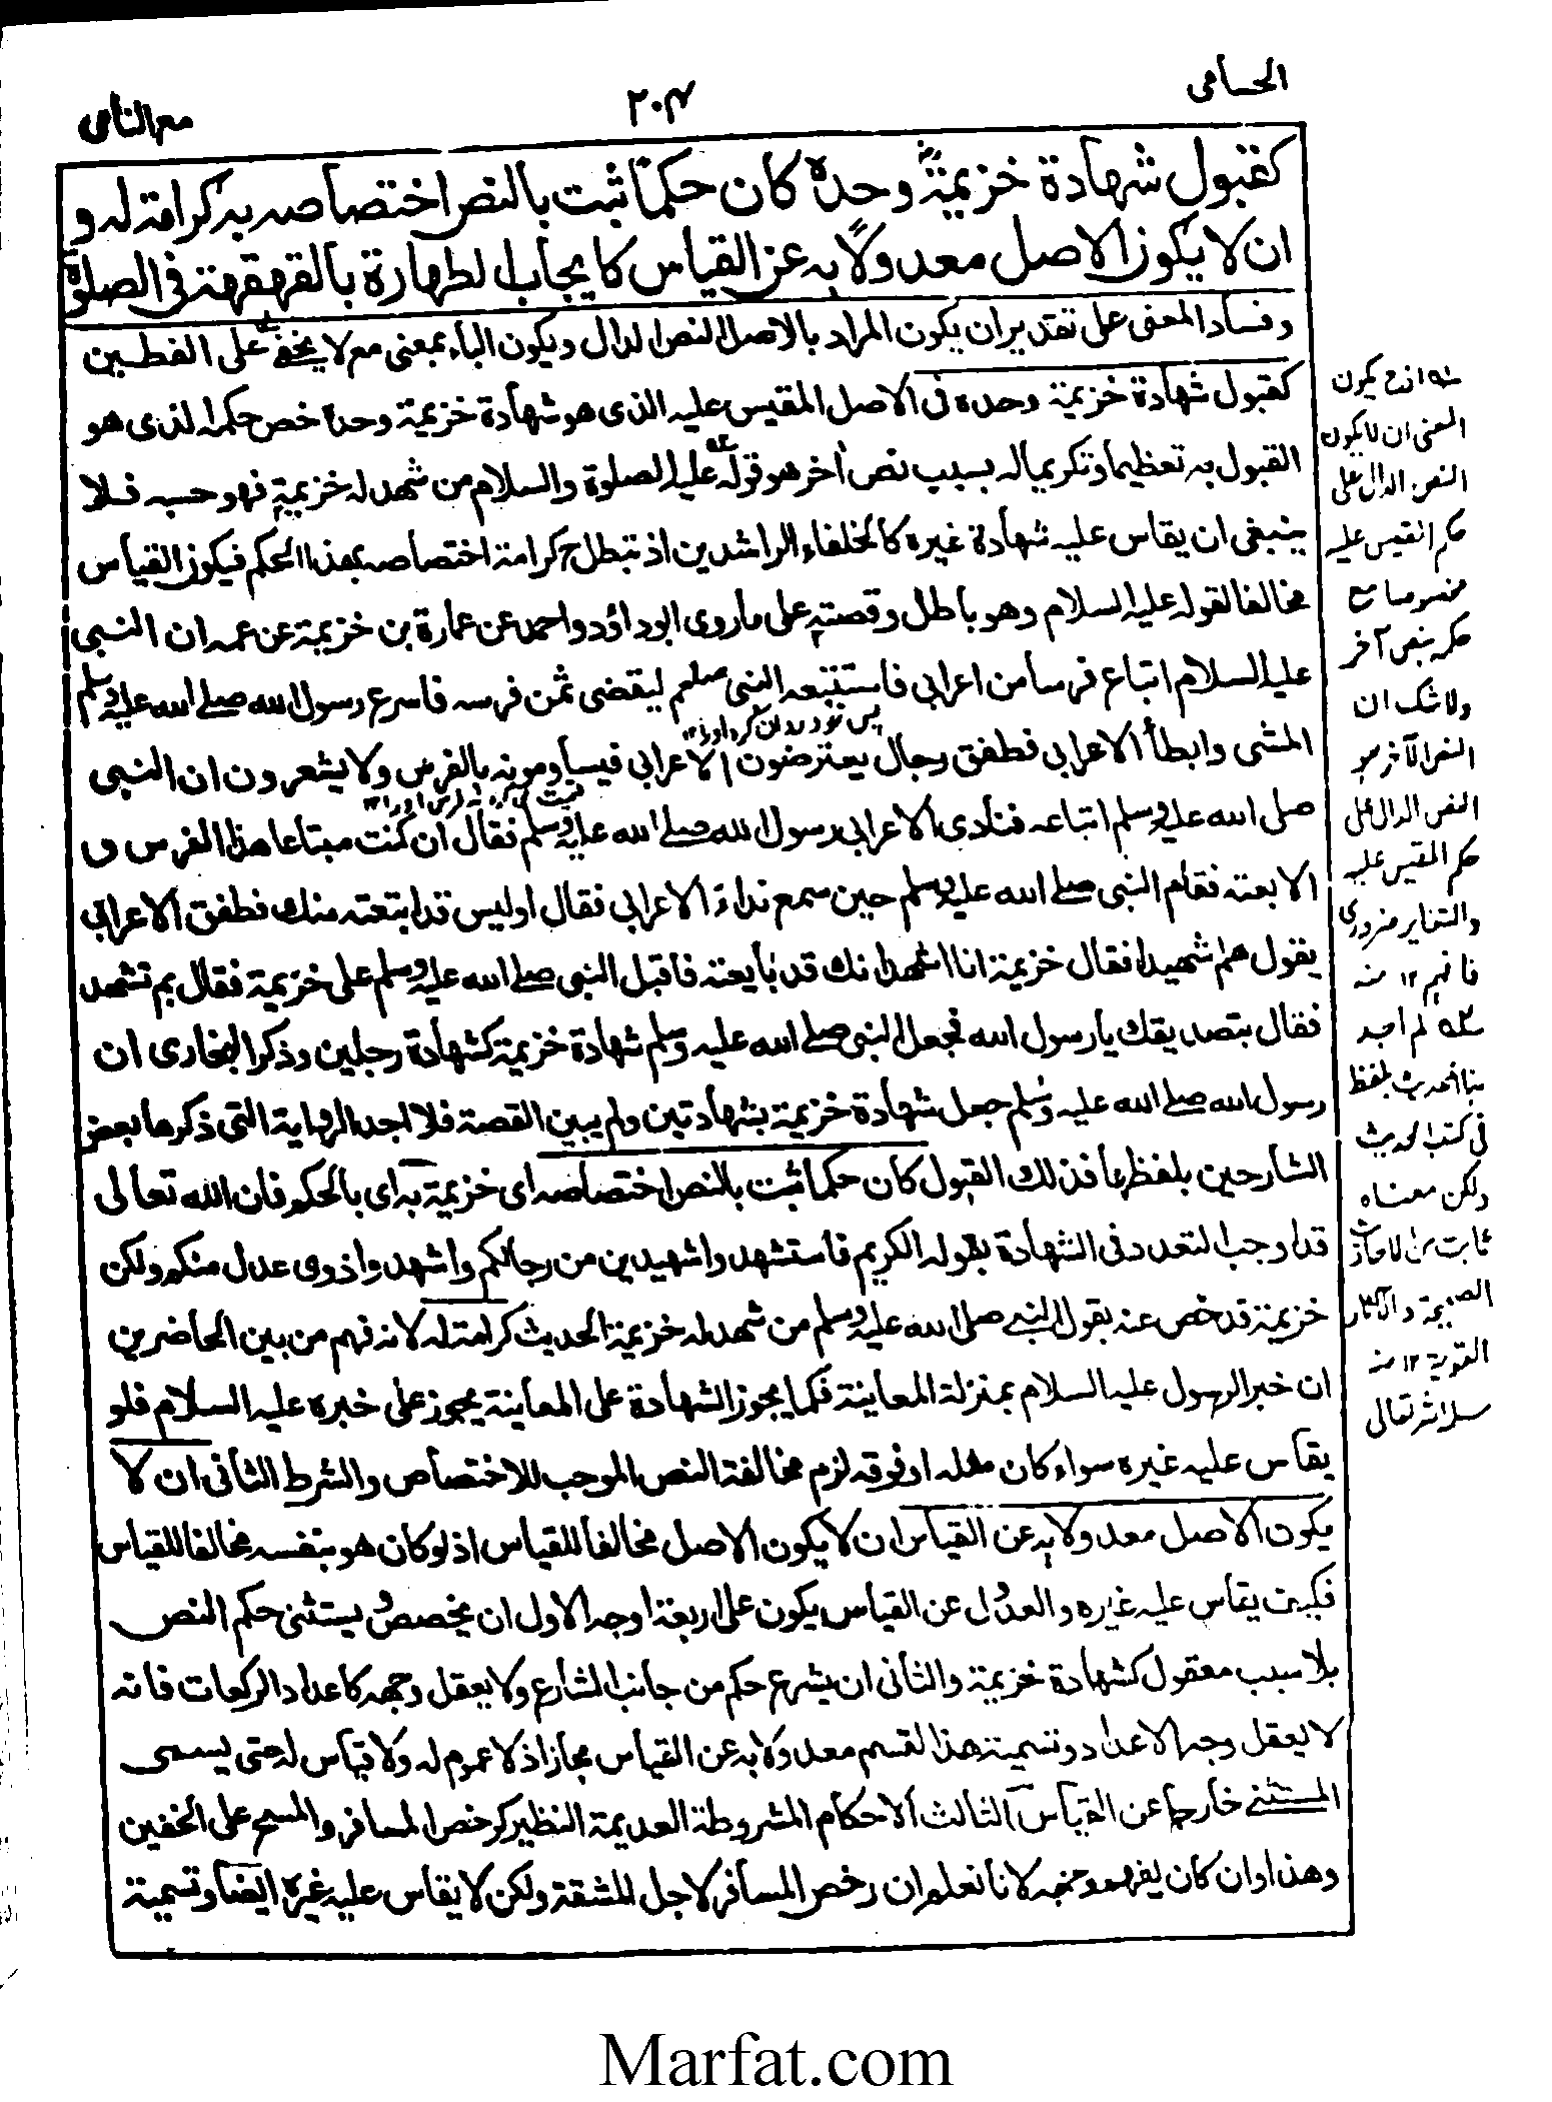 الحسامي
٢٠٤
مع النامی
كقبول شهادة خزيمة وحده كان حكما ثبت بالنص اختصاصه به كرامة له و
ان لا يكون الاصل معدولا به عن القياس كايجاب الطهارة بالقهقهة فى الصلوة
وفساد المعنى على تقدير ان يكون المراد بالاصل النص الدال ويكون الباء بمعنى مع لا يخفى على الفطين
كقبول شهادة خزيمة وحده فى الاصل المقيس عليه الذى هو شهادة خزيمة وحده خص حكمه الذى هو
القبول به تعظيما وتكريما له بسبب نص اٰخر هو قوله عليه الصلوة والسلام من شهد له خزيمة فهو حسبه فلا
ينبغى ان يقاس عليه شهادة غيره كالخلفاء الراشدين اذ تبطل ح كرامة اختصاصه بهذا الحكم فيكون القياس
مخالفا لقوله عليه السلام وهو باطل وقصته على ما روى ابو داؤد واحمد عن عمارة بن خزيمة عن عمه ان النبى
عليه السلام ابتاع فرسا من اعرابى فاستتبعه النبى صلعم ليقضى ثمن فرسه فاسرع رسول الله صلے الله عليه وسلم
المشى وابطأ الاعرابى فطفق رجال يعترضون الاعرابى فيساومونه بالفرس ولا يشعرون ان النبى
صلى الله عليه وسلم ابتاعه فنادى الاعرابى رسول الله صلے الله عليه وسلم فقال ان كنت مبتاعا هذا الفرس و
الا بعته فقام النبى صلے الله عليه وسلم حين سمع نداء الاعرابى فقال اوليس قد ابتعته منك فطفق الاعرابى
يقول هلم شهيدا فقال خزيمة انا اشهد انك قد بايعته فاقبل النبى صلے الله عليه وسلم على خزيمة فقال بم تشهد
فقال بتصديقك يا رسول الله فجعل النبى صلے الله عليه وسلم شهادة خزيمة كشهادة رجلين وذكر البخارى ان
رسول الله صلے الله عليه وسلم جعل شهادة خزيمة بشهادتين ولم يبين القصة فلا اجد الرواية التى ذكرها بعض
الشارحين بلفظها فذلك القبول كان حكما ثبت بالنص اختصاصه اى خزيمة به اى بالحكم فان الله تعالى
قد اوجب التعدد فى الشهادة بقوله الكريم فاستشهدوا شهيدين من رجالكم واشهدوا ذوى عدل منكم ولكن
خزيمة قد خص عنه بقول النبے صلى الله عليه وسلم من شهد له خزيمة الحديث كرامة له لانه فهم من بين الحاضرين
ان خبر الرسول عليه السلام بمنزلة المعاينة فكما يجوز الشهادة على المعاينة يجوز على خبره عليه السلام فلو
يقاس عليه غيره سواء كان مثله او فوقه لزم مخالفة النص الموجب للاختصاص والشرط الثانى ان لا
يكون الاصل معدولا به عن القياس ان لا يكون الاصل مخالفا للقياس اذ لو كان هو بنفسه مخالفا للقياس
فكيف يقاس عليه غيره والعدول عن القياس يكون على اربعة اوجه الاول ان يخصص ويستثنى حكم النص
بلا سبب معقول كشهادة خزيمة والثانى ان يشرع حكم من جانب الشارع ولا يعقل وجهه كاعداد الركعات فانه
لا يعقل وجه الاعداد وتسمية هذا القسم معدولا به عن القياس مجاز اذ لا عموم له ولا قياس له حتى يسمى
المستثنى خارجا عن القياس الثالث الاحكام المشروطة العديمة النظير كرخص المسافر والمسح على الخفين
وهذا وان كان يفهم وجهه لانا نعلم ان رخص المسافر لاجل المشقة ولكن لا يقاس عليه غيره ايضا وتسمية
له اذ ح يكون
المعنى ان لا يكون
النص الدال على
حكم المقيس عليه
مخصوصا مع
حكمه بنص آخر
ولا شك ان
النص الآخر هو
النص الدال على
حكم المقيس عليه
والتغاير ضرورى
فافهم ١٢ منه
لم اجد
هذا الحديث بلفظ
فى كتب الحديث
ولكن معناه
ثابت من الاحاديث
الصحيحة والآثار
القوية ١٢ منه
سلمه الله تعالى
Marfat.com